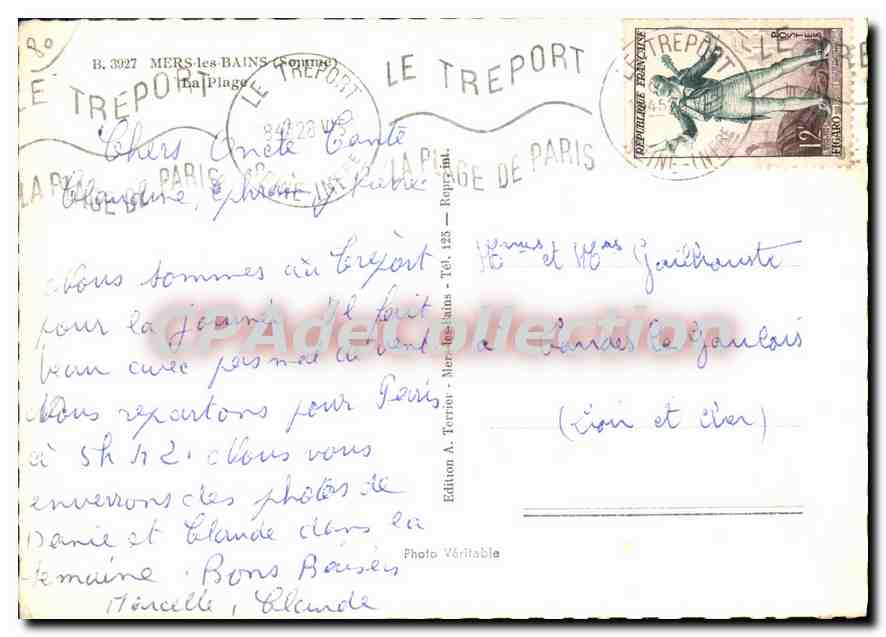 80
B. 3927 MERS-les-BAINS (Somme)
La Plage
LE TREPORT
LA PLAGE DE PARIS
LE TREPORT
28
LE TREPORT
LA PLAGE DE PARIS
LE TREPORT
SEINE-INFRE
LE
REPUBLIQUE FRANÇAISE
POSTES
12F
FIGARO
Chers Oncle Tante
Claudine, Ephrem, Pierre
Nous sommes au Tréport
pour la journée. Il fait
beau avec pas mal de vent
Nous repartons pour Paris
à 5h42. Nous vous
enverrons des photos de
Danie et Claude dans la
semaine. Bons Baisers
Marcelle, Claude
Edition A. Terrier - Mers-les-Bains - Tél. 125 — Repr. int.
et
à Landes le Gaulois
(Loir et Cher)
Photo Véritable
CPAdeCollection